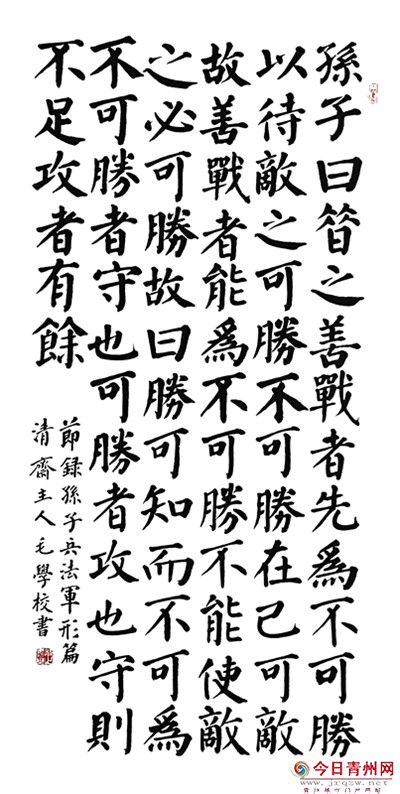 孫子曰昔之善戰者先爲不可勝
以待敵之可勝不可勝在己可敵
故善戰者能爲不可勝不能使敵
之必可勝故曰勝可知而不可爲
不可勝者守也可勝者攻也守則
不足攻者有餘
節録孫子兵法軍形篇
清齋主人毛學校書
今日青州网
www.jrqzw.net